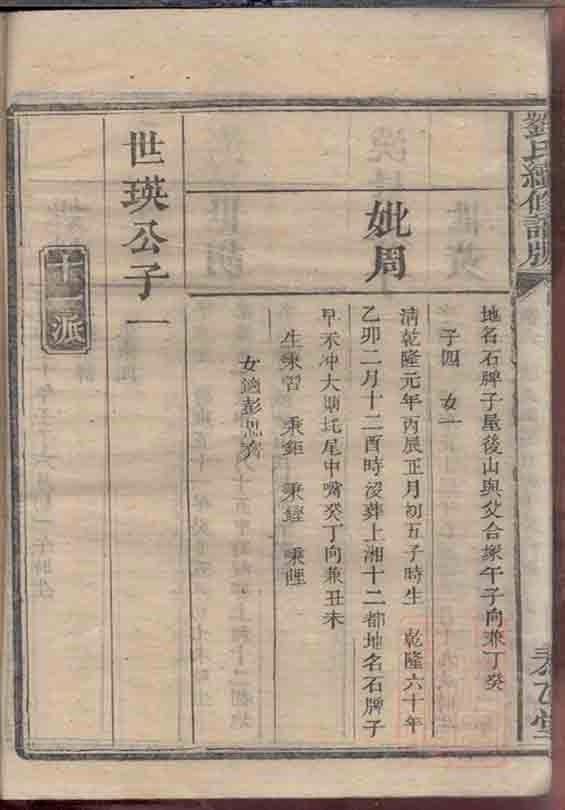 劉氏續修譜牒
泰乙堂
地名石牌子屋後山與父合塚午子向兼丁癸
子四 女一
妣周
清乾隆元年丙辰正月初五子時生 乾隆六十年
乙卯二月十二酉時沒葬上湘十二都地名石牌子
早禾冲大塘圫尾中嘴癸丁向兼丑未
生秉習 秉鉅 秉鏗 秉鋰
女適彭思
世瑛公子一
十二派